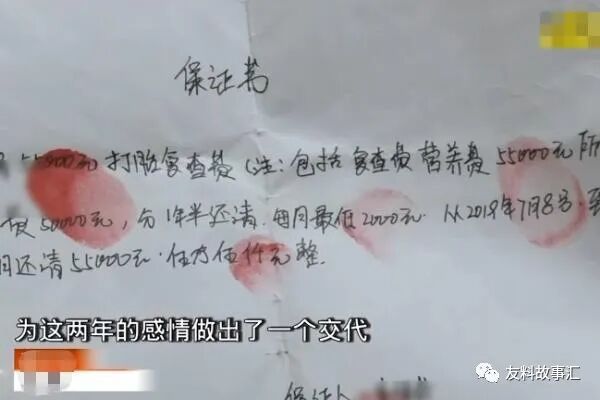 保证书
00元打胎复查费(注:包括复查费营养费55000元所
50000元,分1年半还清.每月最低2000元.从2019年7月8号.至
月还清55000元.伍万伍仟元整.
为这两年的感情做出了一个交代
保证人
友料故事汇